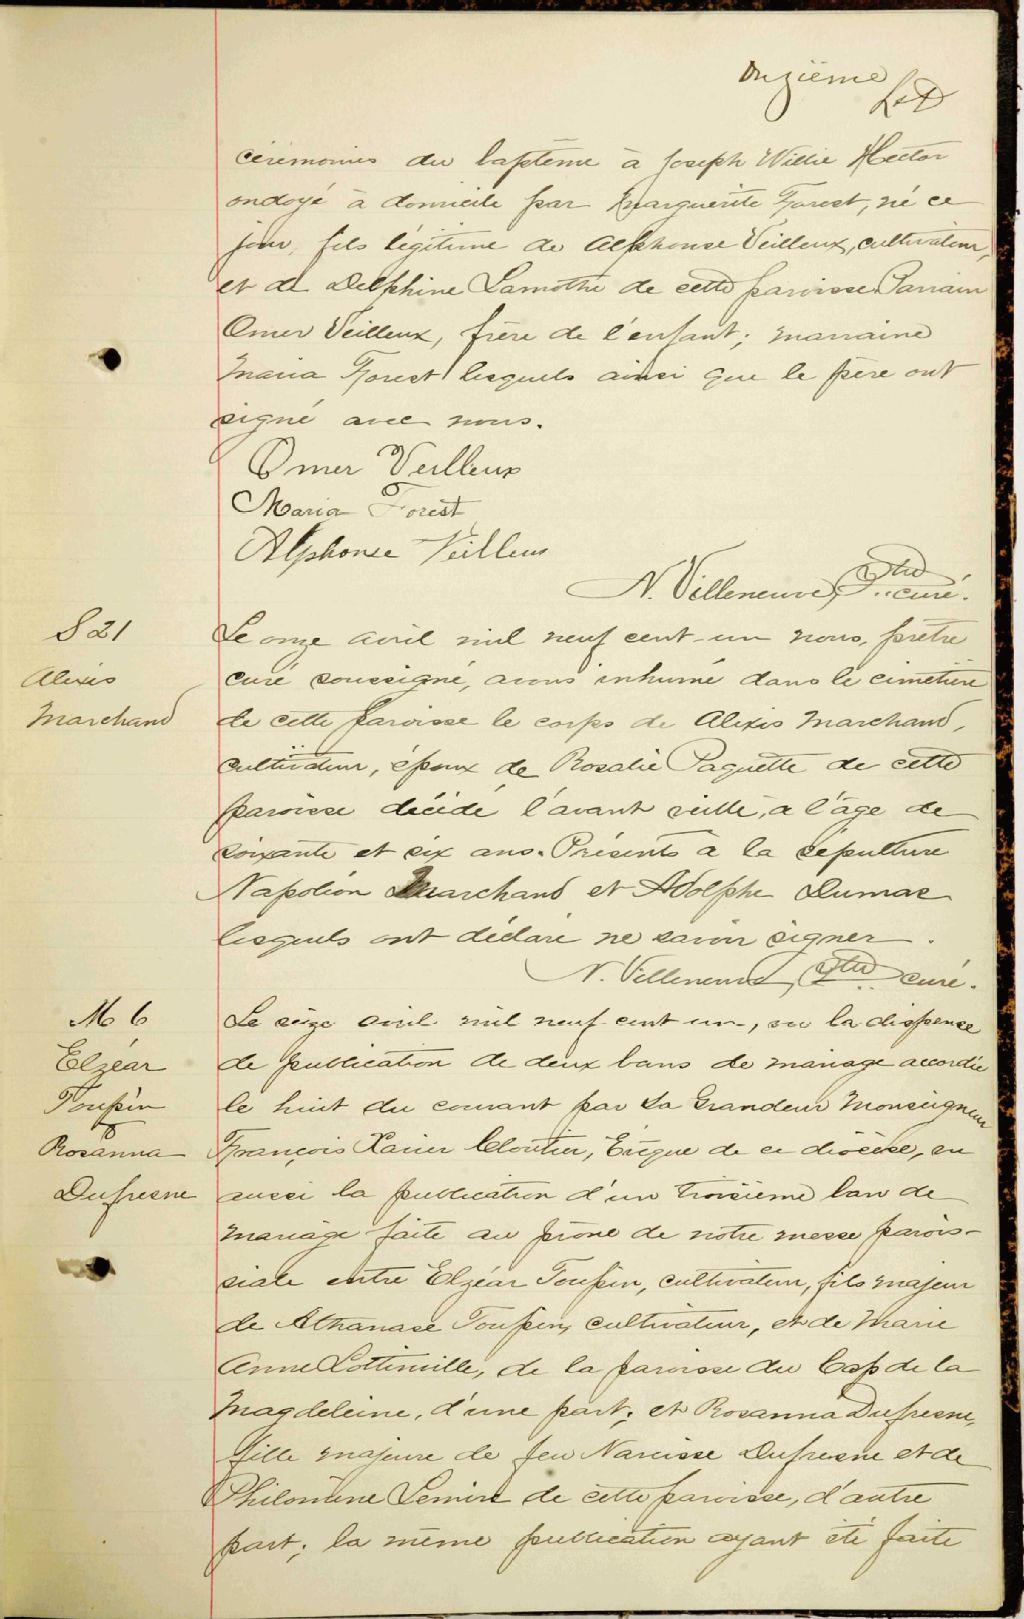 onzième
L&D
cérémonies du baptême à Joseph Willie Hector
ondoyé à domicile par Marguerite Forest, né ce
jour, fils légitime de Alphonse Veilleux, cultivateur,
et de Delphine Lamothe de cette paroisse. Parrain
Omer Veilleux, frère de l'enfant; marraine
Maria Forest lesquels ainsi que le père ont
signé avec nous.
Omer Veilleux
Maria Forest
Alphonse Veilleux
N. Villeneuve, Ptre curé.
S 21
Alexis
Marchand
Le onze avril mil neuf cent-un nous, prêtre
curé soussigné, avons inhumé dans le cimetière
de cette paroisse le corps de Alexis Marchand,
cultivateur, époux de Rosalie Paquette de cette
paroisse décédé l'avant veille, a l'âge de
soixante et six ans. Présents à la sépulture
Napoléon Marchand et Adolphe Dumas
lesquels ont déclaré ne savoir signer.
N. Villeneuve, Ptre curé.
M 6
Elzéar
Toupin
&
Rosanna
Dufresne
Le seize avril mil neuf cent un, vu la dispense
de publication de deux bans de mariage accordée
le huit du courant par Sa Grandeur Monseigneur
François Xavier Cloutier, Evêque de ce diocèse, vu
aussi la publication d'un troisième ban de
mariage faite au prône de notre messe parois-
siale entre Elzéar Toupin, cultivateur, fils majeur
de Athanase Toupin, cultivateur, et de Marie
Anne Lottinville, de la paroisse du Cap de la
Magdeleine, d'une part; et Rosanna Dufresne,
fille majeure de feu Narcisse Dufresne et de
Philomène Lemire de cette paroisse, d'autre
part; la même publication ayant été faite